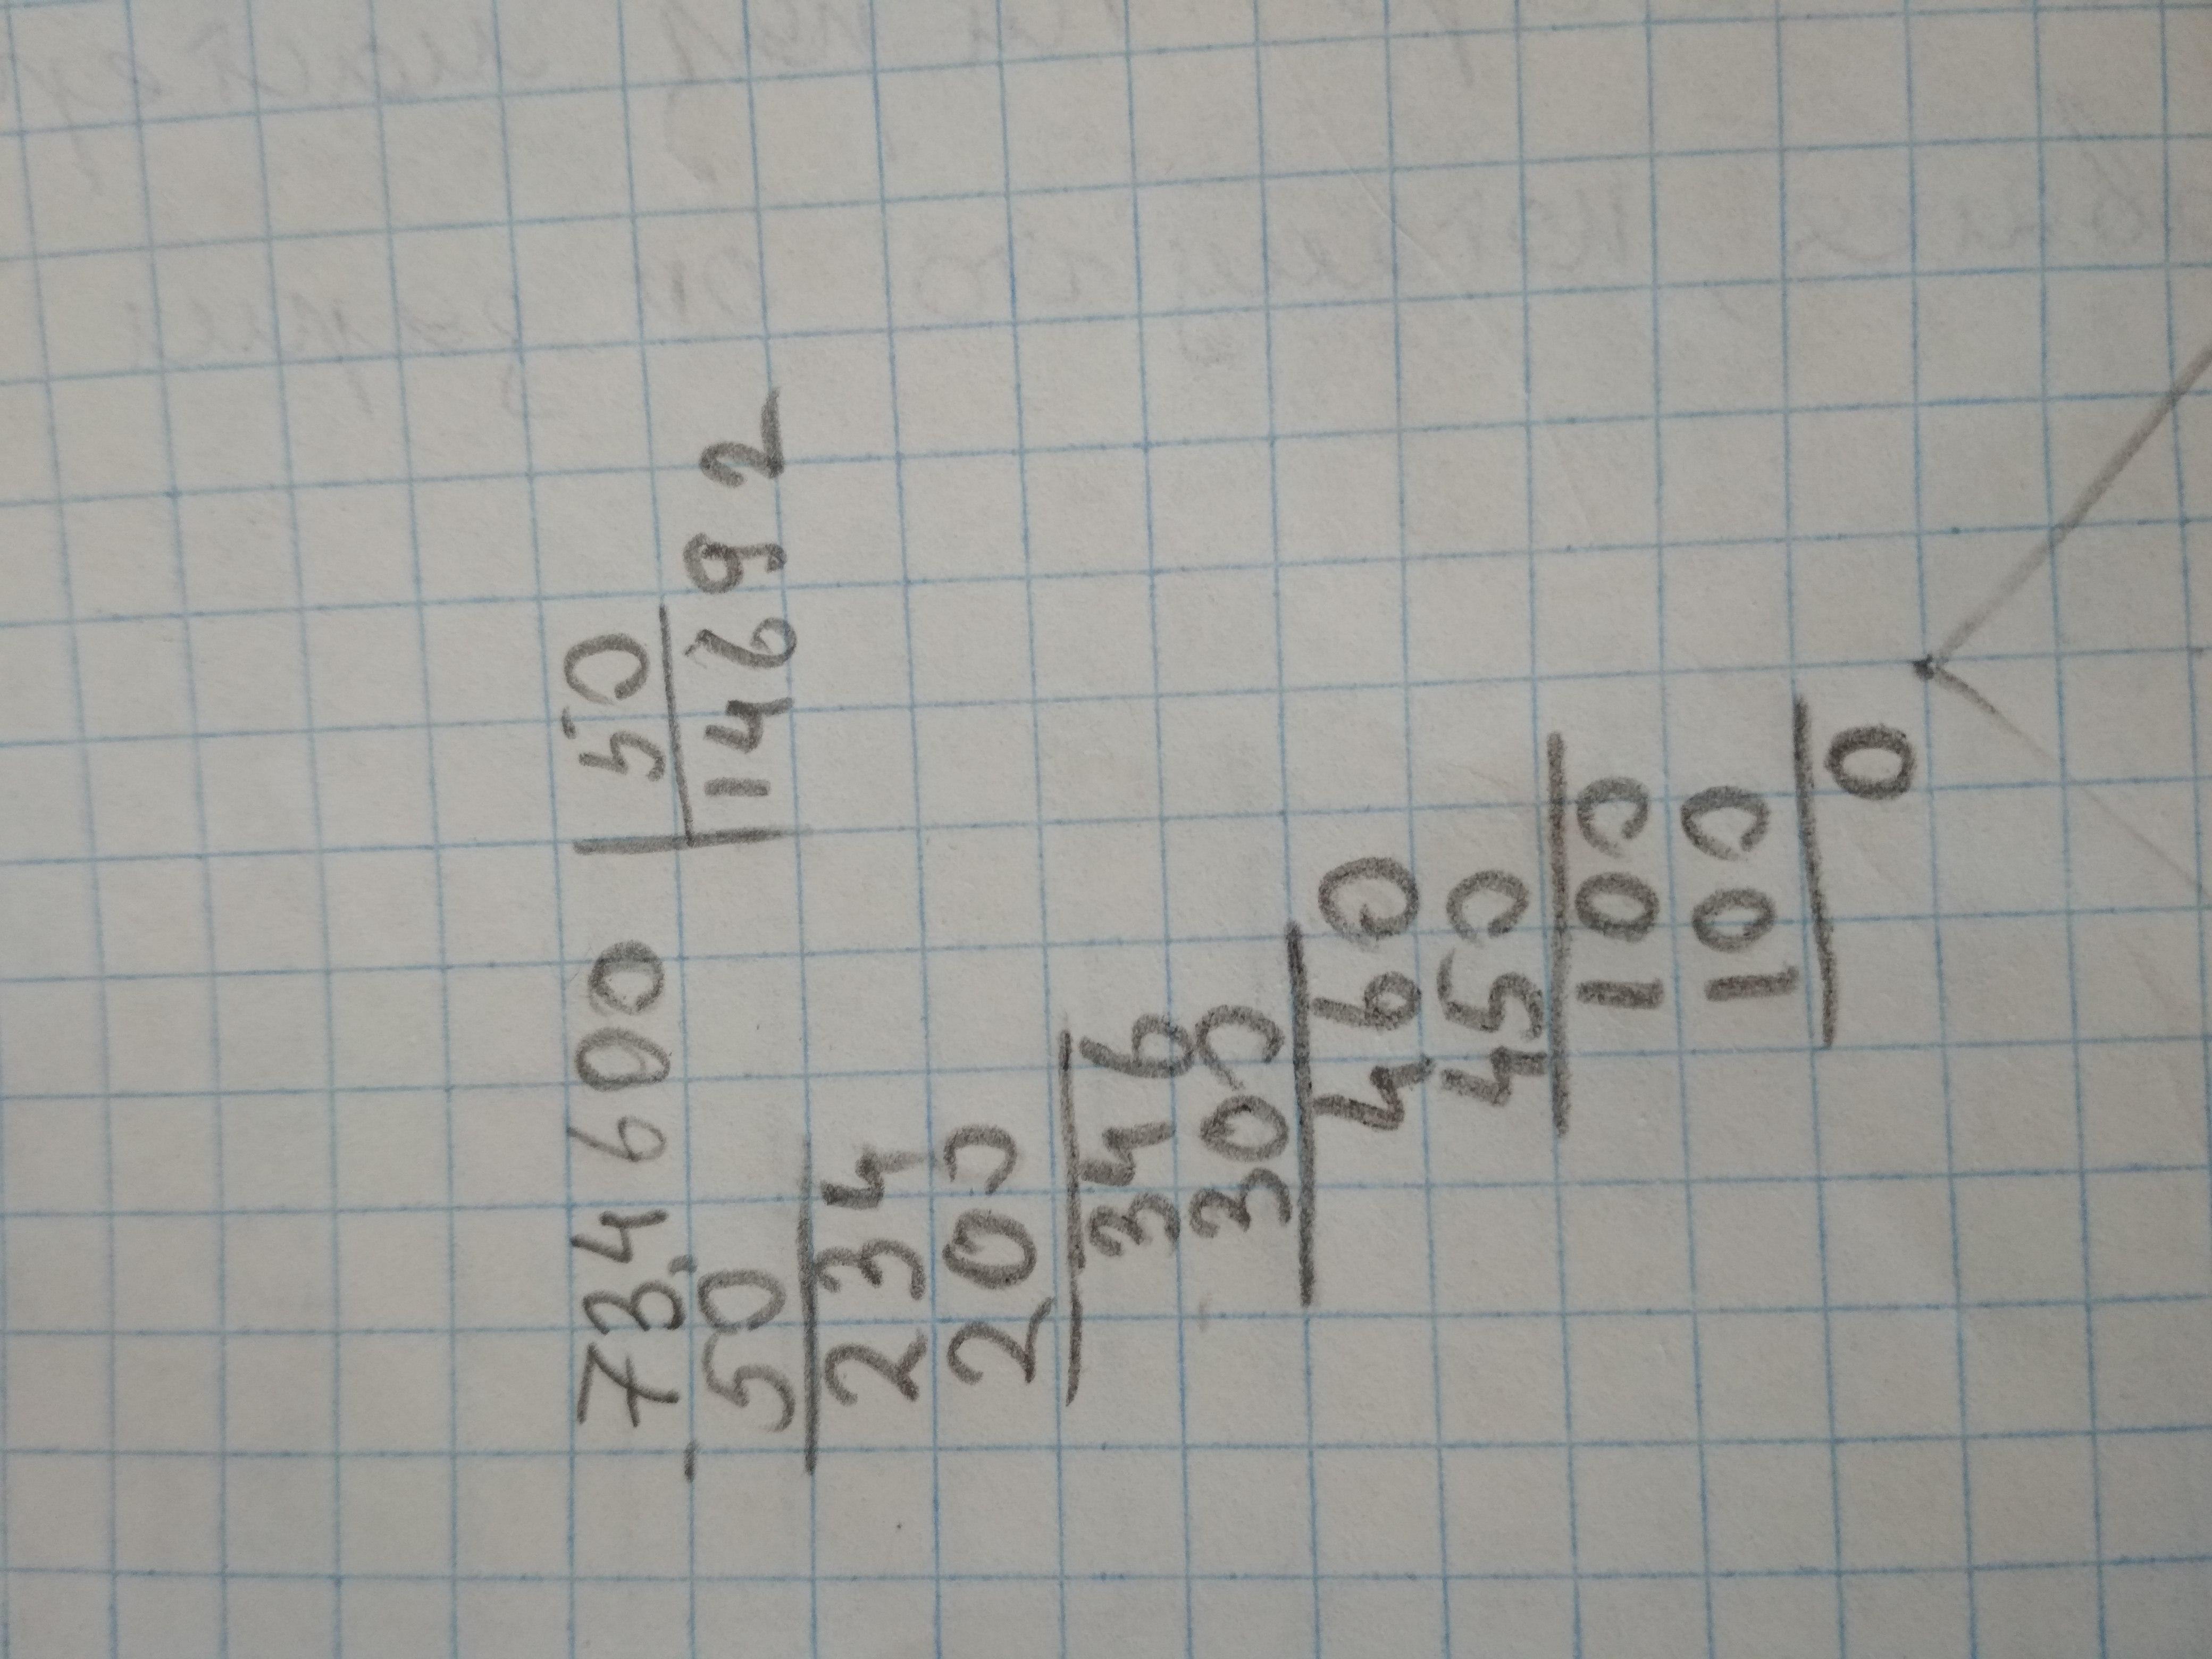 734600 | 50
- 50 | 14692
234
200
346
300
460
450
100
100
0